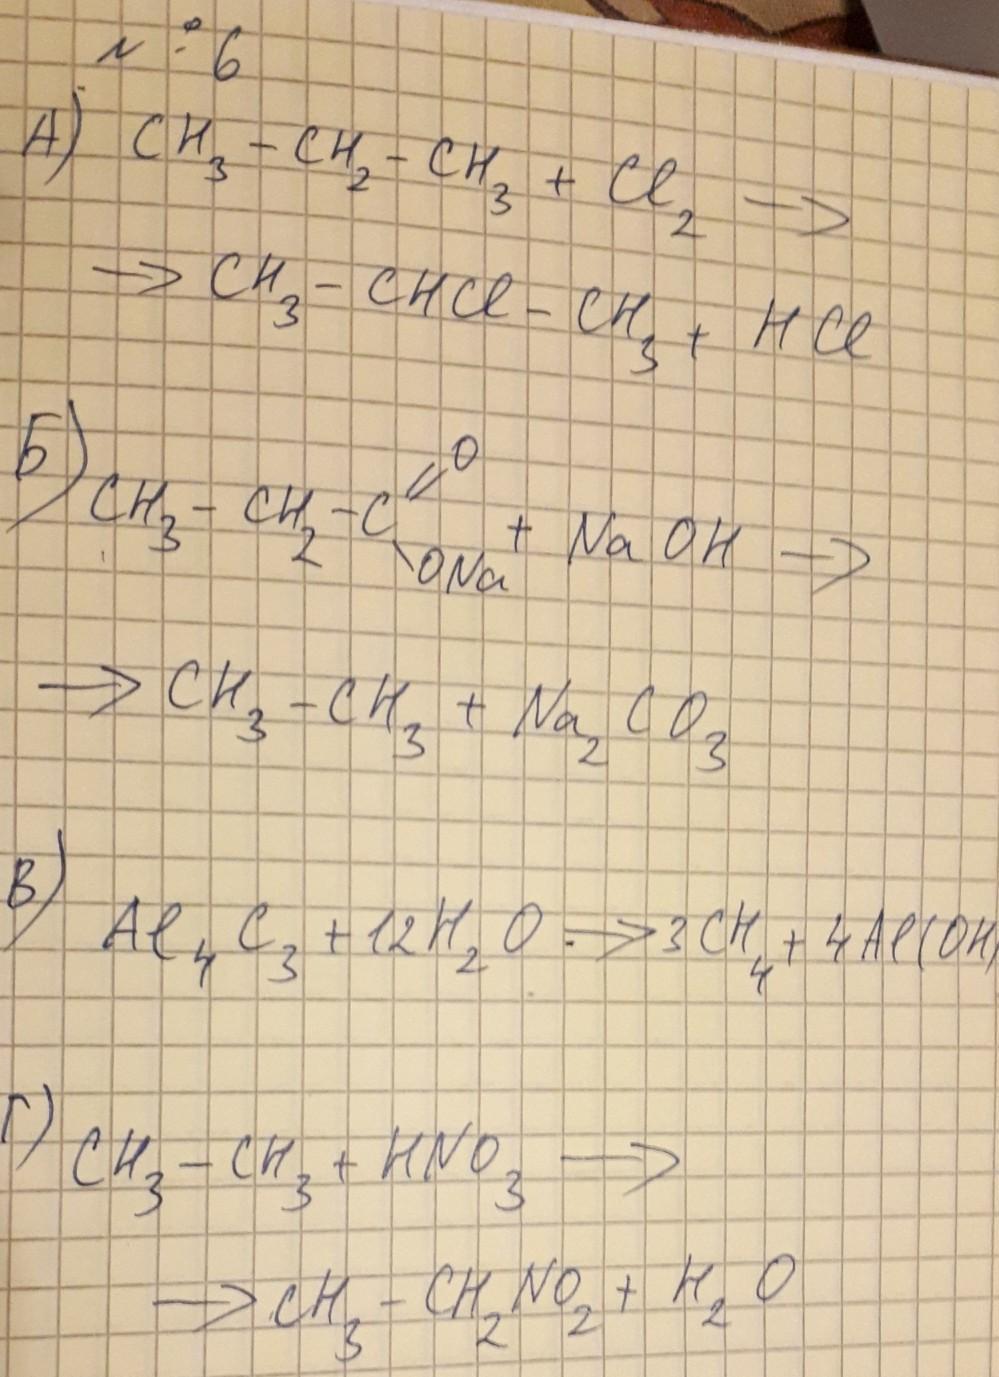 № 6
А) CH₃ – CH₂ – CH₃ + Cl₂ →
→ CH₃ – CHCl – CH₃ + HCl
Б) CH₃ – CH₂ – C
=O
\ONa
+ NaOH →
→ CH₃ – CH₃ + Na₂CO₃
В) Al₄C₃ + 12H₂O → 3CH₄ + 4Al(OH)
Г) CH₃ – CH₃ + HNO₃ →
→ CH₃ – CH₂NO₂ + H₂O